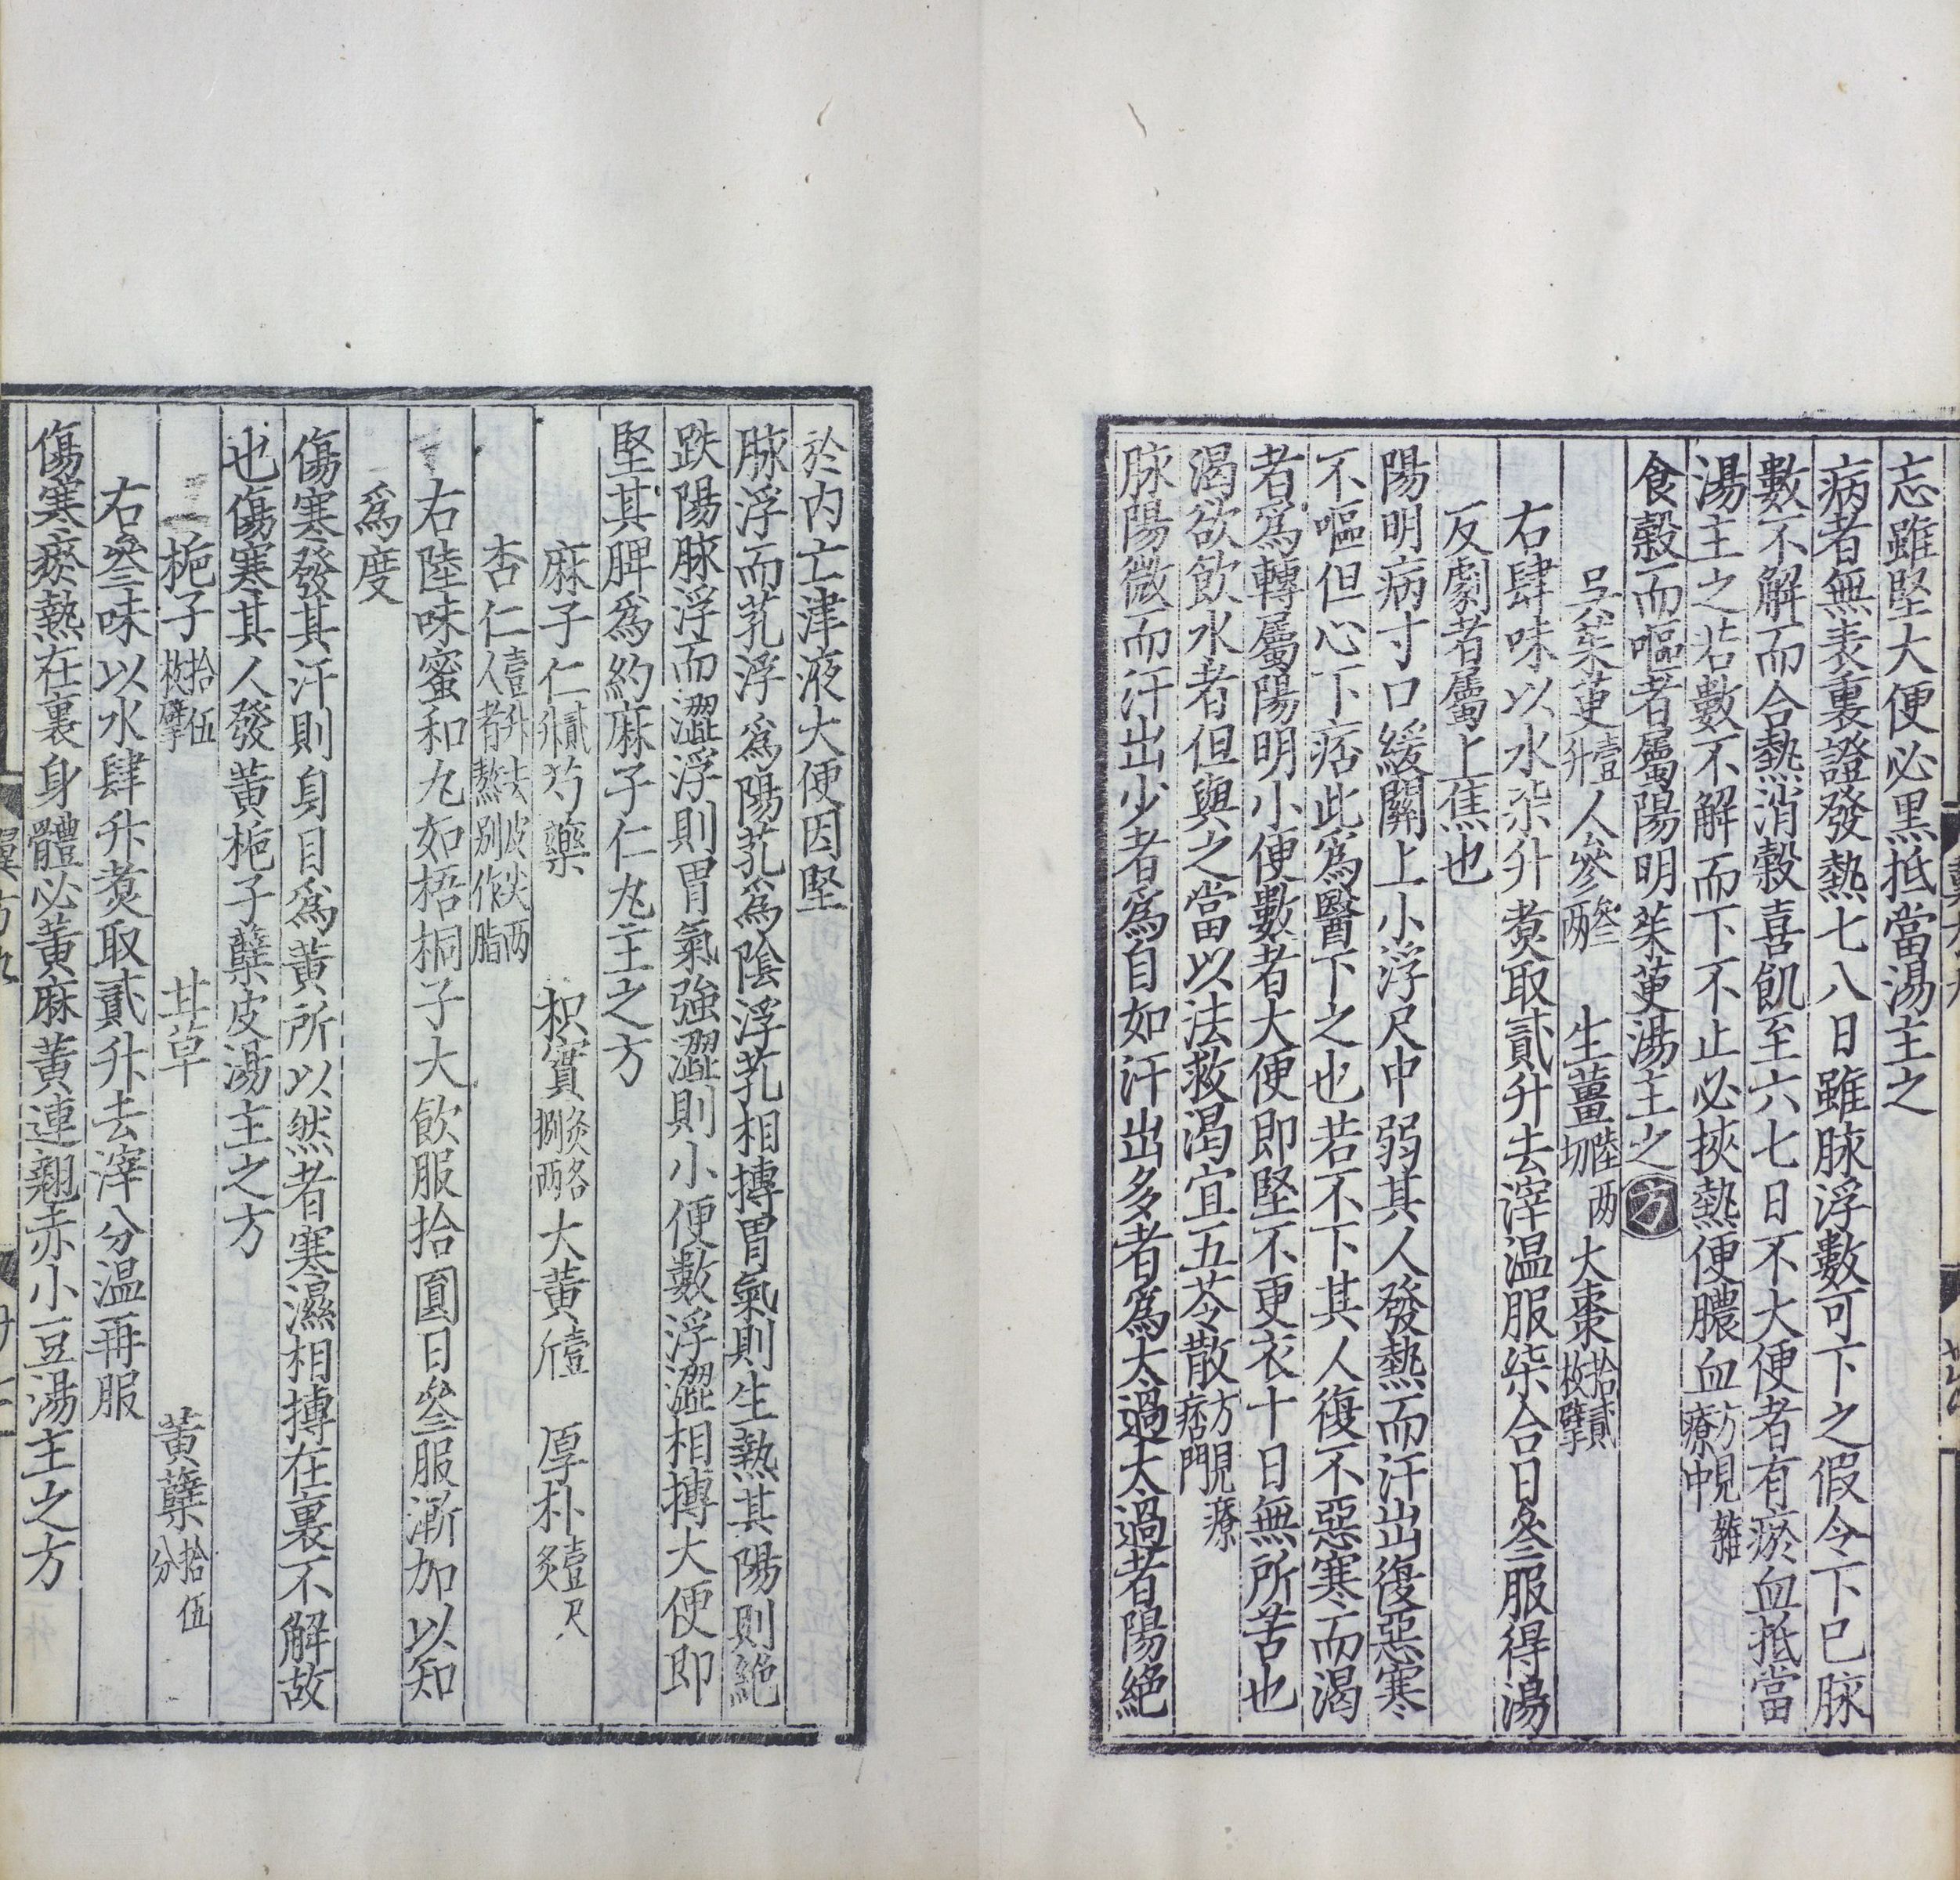 忘雖堅大便必黑抵當湯主之
病者無表裏證發熱七八日雖脉浮數可下之假令下已脉
數不解而合熱消穀喜飢至六七日不大便者有瘀血抵當
湯主之若數不解而下不止必挾熱便膿血方見雜療中
食穀而嘔者屬陽明茱萸湯主之方
吴茱萸壹升人參叁兩生薑陸兩切大棗拾貳枚擘
右肆味以水柒升煑取貳升去滓温服柒合日叁服得湯
反劇者屬上焦也
陽明病寸口緩關上小浮尺中弱其人發熱而汗出復惡寒
不嘔但心下痞此為醫下之也若不下其人復不惡寒而渴
者為轉屬陽明小便數者大便即堅不更衣十日無所苦也
渴欲飲水者但與之當以法救渴宜五苓散方見療痞門
脉陽微而汗出少者為自如汗出多者為太過太過者陽絶
於内亡津液大便因堅
脉浮而芤浮為陽芤為陰浮芤相摶胃氣則生熱其陽則絶
趺陽脉浮而澀浮則胃氣強澀則小便數浮澀相摶大便即
堅其脾為約麻子仁丸主之方
麻子仁貳升芍藥枳實炙各捌兩大黄壹斤厚朴壹尺炙
杏仁壹升去皮尖兩人者熬别作脂
右陸味蜜和丸如梧桐子大飲服拾圓日叁服漸加以知
為度
傷寒發其汗則身目為黄所以然者寒濕相摶在裏不解故
也傷寒其人發黄梔子蘗皮湯主之方
梔子拾伍枚擘甘草黄蘗拾伍分
右叁味以水肆升煑取貳升去滓分温再服
傷寒瘀熱在裏身體必黄麻黄連翹赤小豆湯主之方